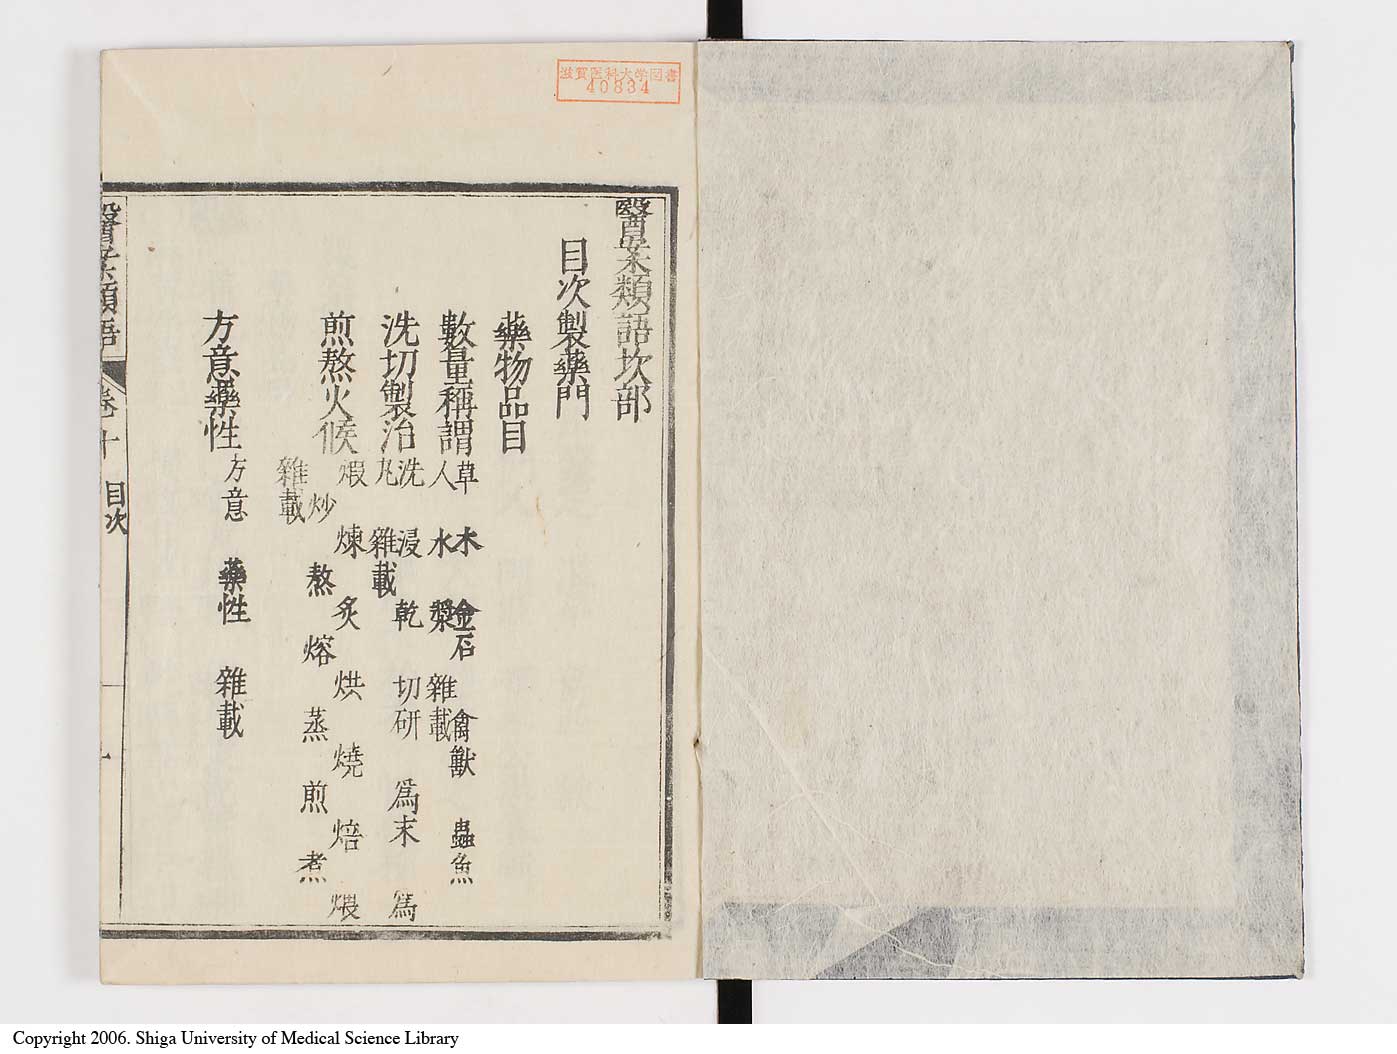 滋賀医科大学図書
40834
醫案類語坎部
目次製藥門
藥物品目
數量稱謂 草 木 金石 禽獸 蟲魚
人 水 漿 雜載
洗切製治 洗 浸 乾 切研 爲末 爲
丸 雜載
煎熬火候 煆 煉 炙 烘 燒 焙 煨
炒 熬 熔 蒸 煎 煮
雜載
方意藥性 方意 藥性 雜載
醫案類語 卷十 目次 一
Copyright 2006. Shiga University of Medical Science Library